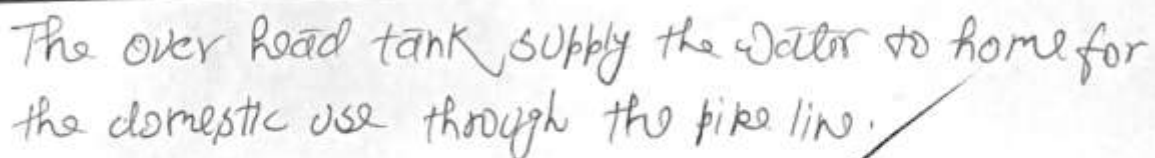 The over head tank supply the water to home for
the domestic use through the pipe line.